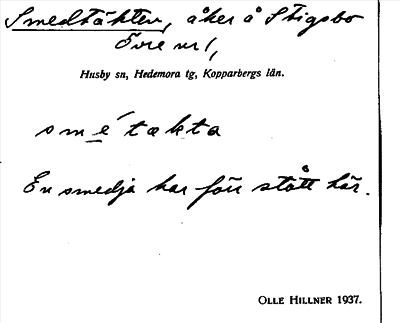 Smedtäkten, åker å Stigsbo
Övre nr 1,
Husby sn, Hedemora tg, Kopparbergs län.
smé̱takta
En smedja har förr stått här.
OLLE HILLNER 1937.